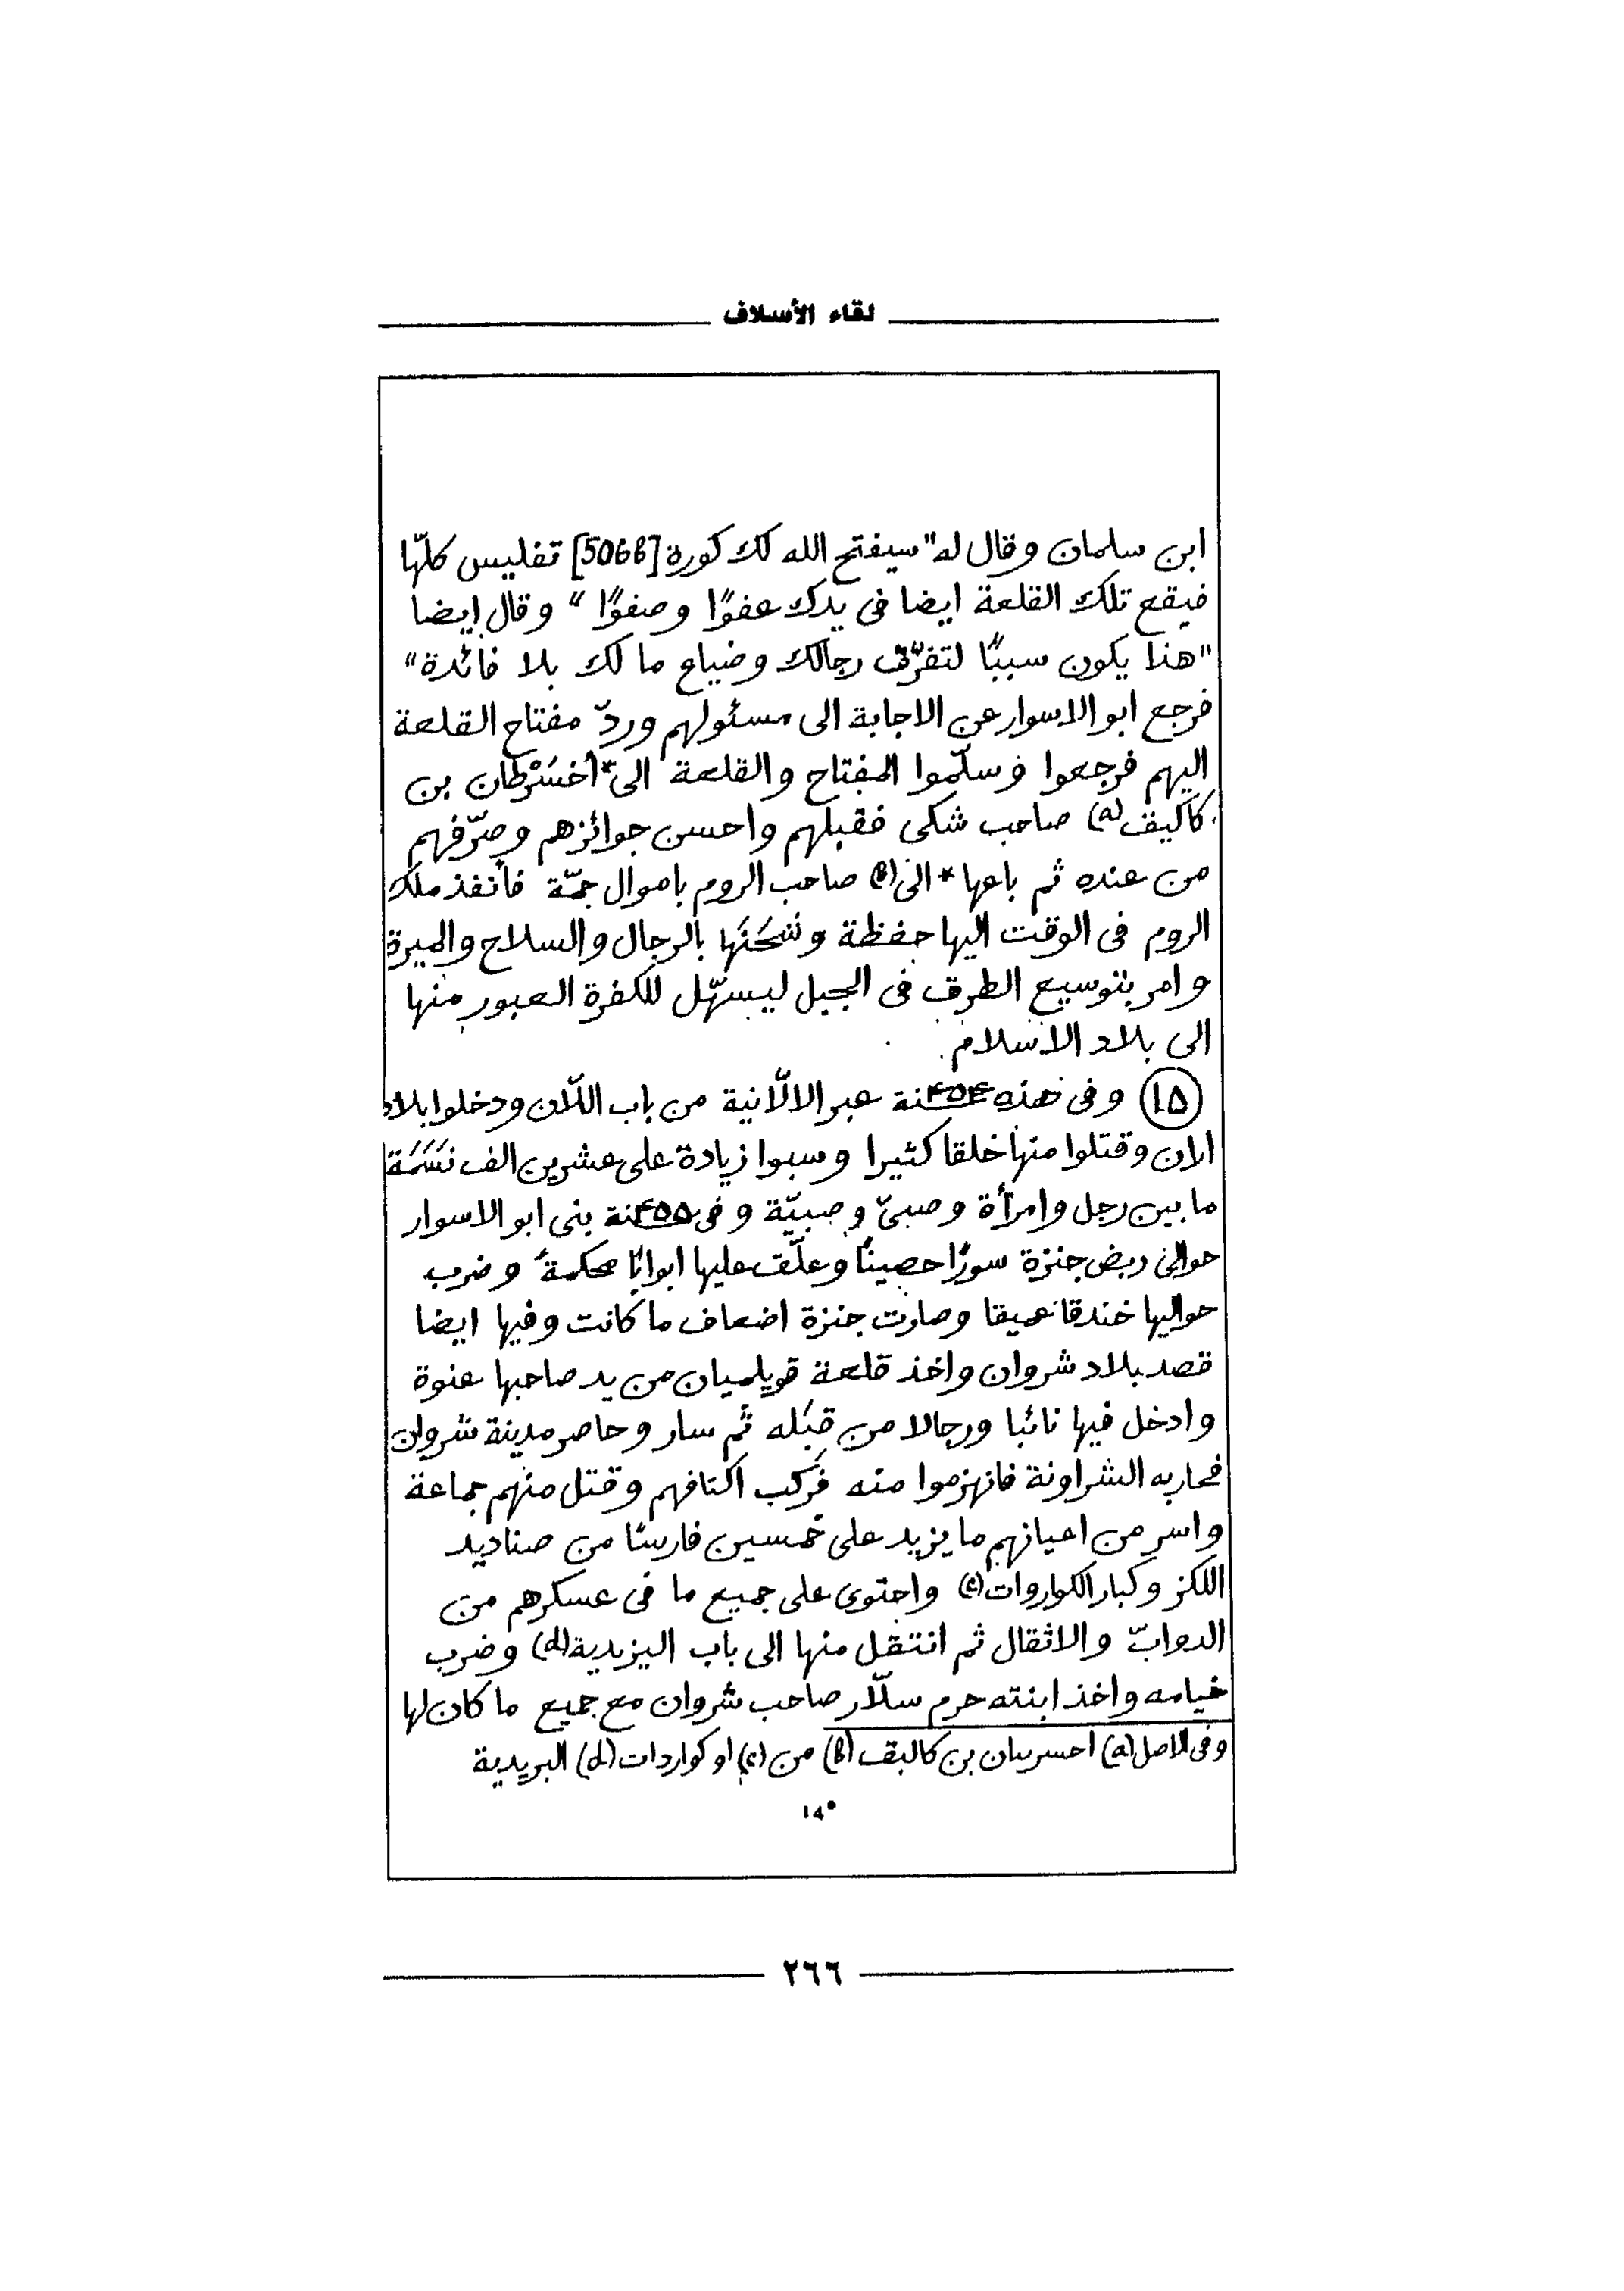 لقاء الأسلاف
ابن سلمان وقال له "سيفتح الله لك كورة [506b] تفليس كلّها
فيقع تلك القلعة ايضا فى يدك عفوًا وصفوًا" وقال ايضا
"هذا يكون سببًا لتفرّق رجالك وضياع ما لك بلا فائدة"
فرجع ابو الاسوار عن الاجابة الى مسئولهم وردّ مفتاح القلعة
اليهم فرجعوا وسلّموا المفتاح والقلعة الى *أخسَرْطان بن
كاكيف (a) صاحب شكى فقبلهم واحسن جوائزهم وصرّفهم
من عنده ثم باعها *الى (b) صاحب الروم باموال جمّة فأنفذ ملك
الروم فى الوقت اليها حفظة وشَحَنَها بالرجال والسلاح والميرة
وامر بتوسيع الطرق فى الجبل ليسهّل للكفرة العبور منها
الى بلاد الاسلام
(١٥) وفى هذه سنة ۴۵۴ عبر الالّانية من باب اللّان ودخلوا بلاد
اران وقتلوا منها خلقا كثيرا وسبوا زيادة على عشرين الف نَسَمَة
ما بين رجل وامرأة وصبىّ وصبيّة وفى سنة ۴۵۵ بنى ابو الاسوار
حوالى ربض جنزة سورًا حصينًا وعلّق عليها ابوابًا محكمةً وضرب
حواليها خندقا عميقا وصارت جنزة اضعاف ما كانت وفيها ايضا
قصد بلاد شروان واخذ قلعة قويلميان من يد صاحبها عنوة
وادخل فيها نائبا ورجالا من قبَله ثم سار وحاصر مدينة شروان
فحاربه الشراونة فانهزموا منه فركب اكتافهم وقتل منهم جماعة
واسر من اعيانهم ما يزيد على خمسين فارسًا من صناديد
اللكز وكبار الكواروات (c) واحتوى على جميع ما فى عسكرهم من
الدوابّ والاثقال ثم انتقل منها الى باب اليزيدية (d) وضرب
خيامه واخذ ابنته حرم سلّار صاحب شروان مع جميع ما كان لها
وفى الاصل (a) احسرسان بن كاليقف (b) من (c) او كواردات (d) البريدية
١٤°
٢٦٦